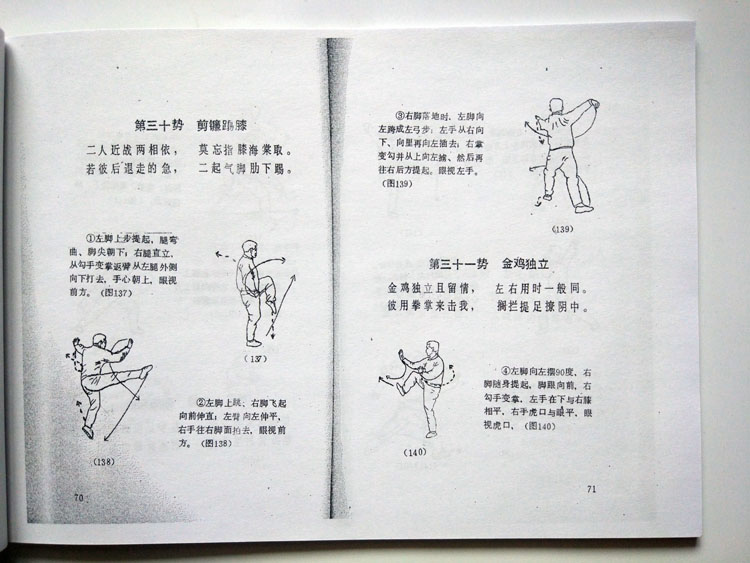 第三十势 剪镰跪膝
二人近战两相依， 莫忘指膝海棠取。
若彼后退走的急， 二起气脚肋下踢。
①左脚上步提起，腿弯
曲、脚尖朝下；右腿直立，
从勾手变掌返臂从左腿外侧
向下打去，手心朝上，眼视
前方。（图137）
(137)
②左脚上跳、右脚飞起
向前伸直；左臂向左伸平，
右手往右脚面拍去，眼视前
方。（图138）
(138)
70
③右脚落地时，左脚向
左跨成左弓步；左手从右向
下、向里再向左抽去；右掌
变勾并从上向左掳、然后再
往右后方提起。眼视左手。
（图139）
(139)
第三十一势 金鸡独立
金鸡独立且留情， 左右用时一般同。
彼用拳掌来击我， 搁拦提足撩阴中。
④左脚向左摆90度，右
脚随身提起，脚跟向前，右
勾手变掌，左手在下与右膝
相平，右手虎口与眼平，眼
视虎口，（图140）
(140)
71